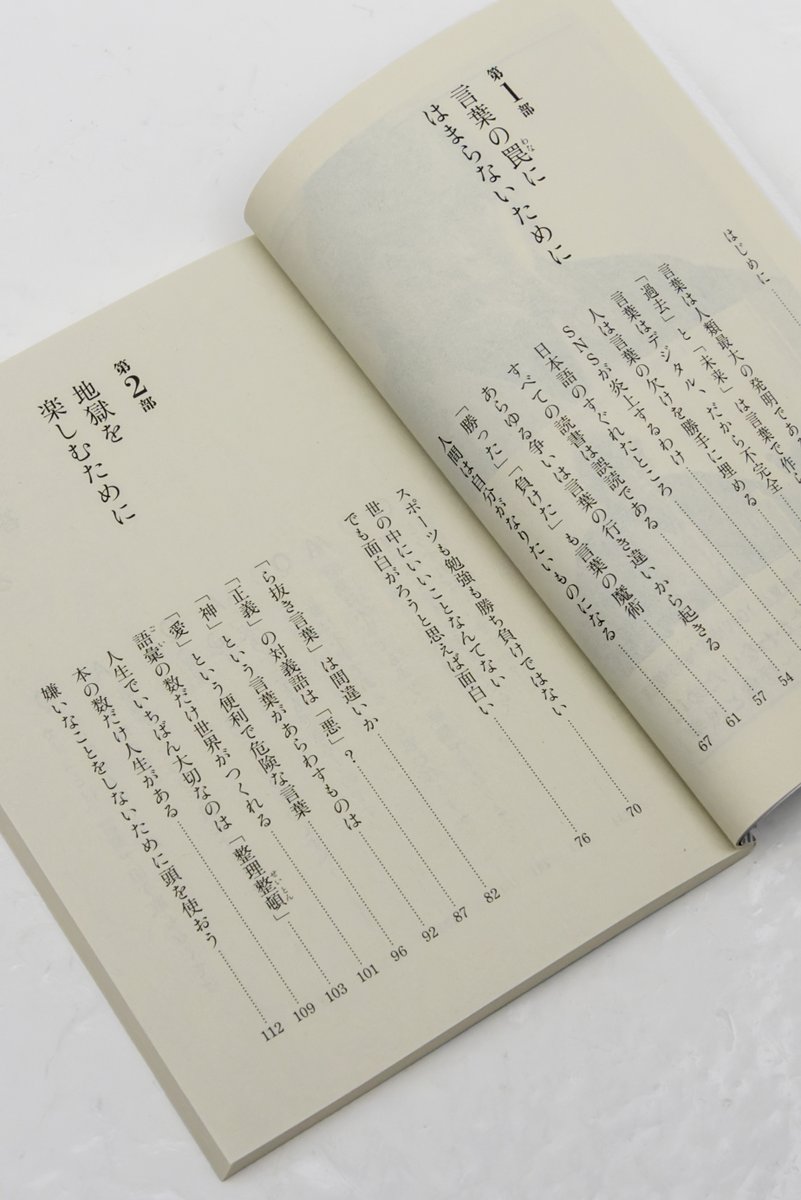 はじめに
第1部
言葉の罠に
わな
はまらないために
言葉は人類最大の発明であ
「過去」と「未来」は言葉で作
言葉はデジタル、だから不完全
人は言葉の欠けを勝手に埋める
SNSが炎上するわけ
日本語のすぐれたところ
すべての読書は誤読である 54
あらゆる争いは言葉の行き違いから起きる 57
「勝った」「負けた」も言葉の魔術 61
人間は自分がなりたいものになる 67
スポーツも勉強も勝ち負けではない 70
世の中にいいことなんてない
でも面白がろうと思えば面白い 76
第2部
地獄を
楽しむために
「ら抜き言葉」は間違いか 82
「正義」の対義語は「悪」？ 87
「神」という言葉があらわすものは 92
「愛」という便利で危険な言葉 96
語彙の数だけ世界がつくれる 101
ごい
人生でいちばん大切なのは「整理整頓」 103
せいとん
本の数だけ人生がある 109
嫌いなことをしないために頭を使おう 112